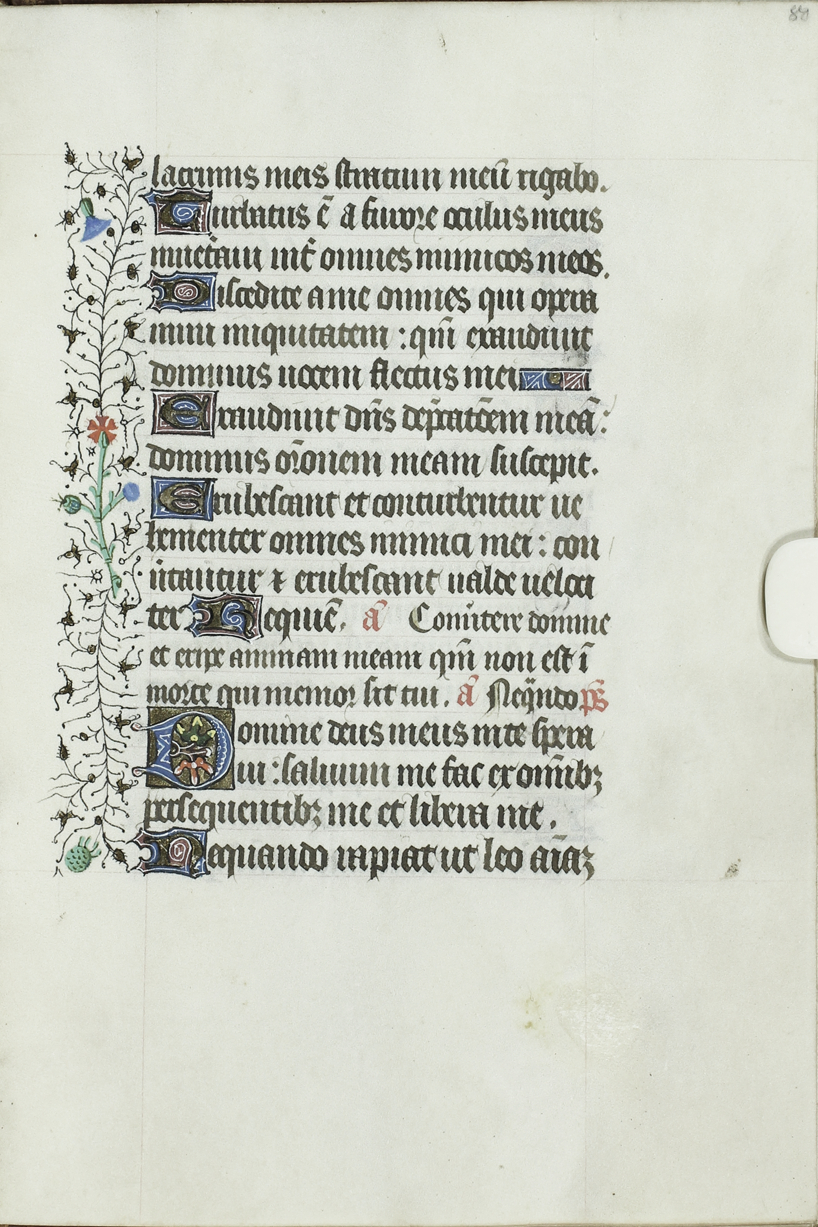 89
lacrimis meis stratum meū rigabo.
Turbatus ē a furore oculus meus
inuetˀaui int̄ omnes inimicos meos.
Discedite a me omnes qui opera
mini iniquitatem : qm̄ exaudiuit
dominus uocem fletus mei
Exaudiuit dn̄s dep̄cacōem meā:
dominus or̄onem meam suscepit.
Erubescant et conturbentur ue
hementer omnes inimici mei : con
uˀtantur ⁊ erubescant ualde ueloci
ter Requiē. a᷈ Conuˀtere domine
et eripe animam meam qm̄ non est ī
morte qui memor sit tui. a᷈ Neq̄ndo p̄s
Domine deus meus in te spera
ui : saluum me fac ex omnibꝫ
persequentibꝫ me et libera me.
Nequando rapiat ut leo aīaꝫ